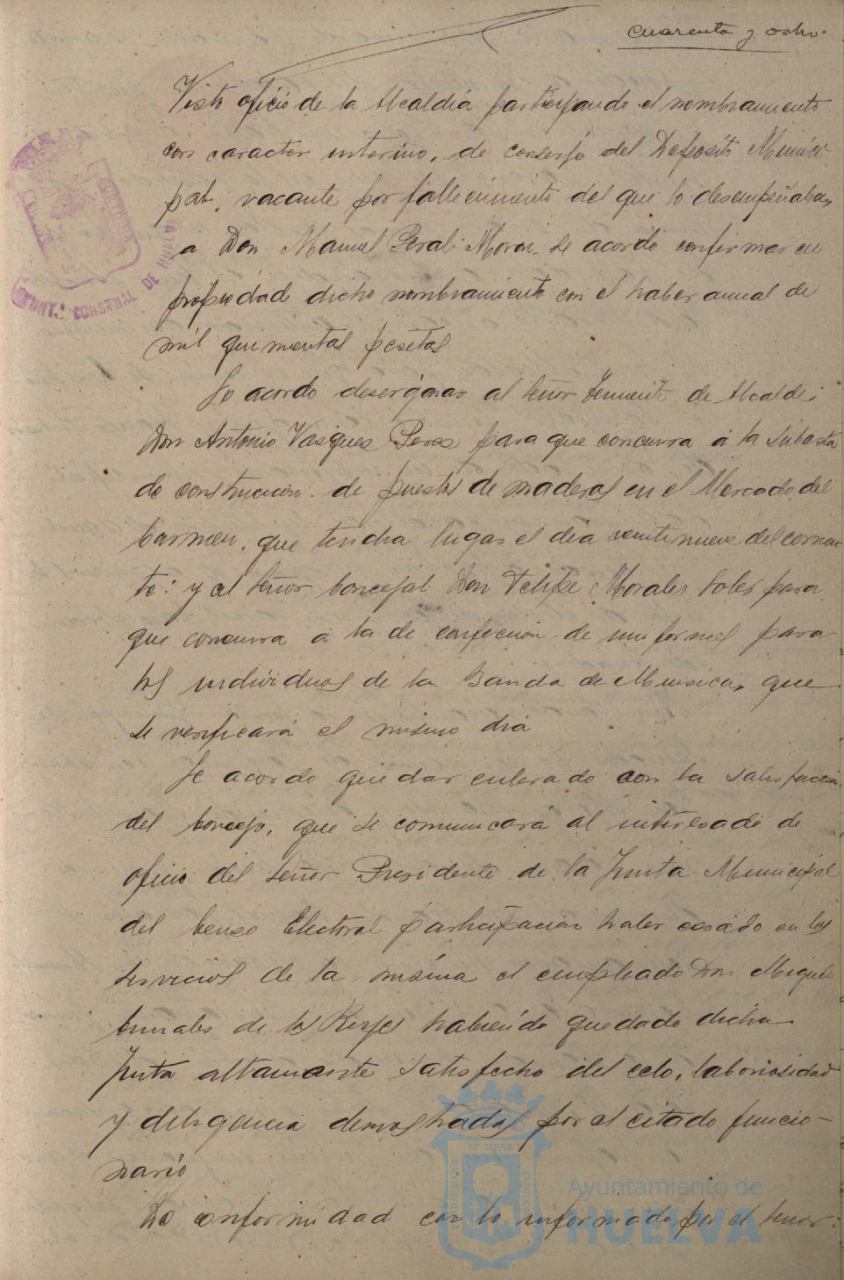 cuarenta y ocho.
Visto oficio de la Alcaldia participando el nombramiento
con caracter interino, de conserje del Deposito Munici-
pal, vacante por fallecimiento del que lo desempeñaba,
a Don Manuel Peral Mora. se acordó confirmar en
propiedad dicho nombramiento con el haber anual de
mil quinientas pesetas
Se acordo designar al Señor Teniente de Alcalde
Don Antonio Vasques Peres para que concurra á la subasta
de construccion de puestos de maderas en el Mercado del
Carmen, que tendra lugar el dia veintinueve del corrien-
te: y al Señor Concejal Don Felipe Morales para
que concurra á la de confeccion de uniformes para
los individuos de la Banda de Musica, que
se verificará el mismo dia
Se acordo quedar enterado con la satisfaccion
del Concejo, que se comunicará al interesado de
oficio del Señor Presidente de la Junta Municipal
del Censo Electoral participacion haber cesado en los
servicios de la misma el empleado Don Miguel
de los Reyes habiendo quedado dicha
Junta altamente satisfecho del celo, laboriosidad
y diligencia demostradas por el citado funcio-
nario
De conformidad con lo informado por el Señor
AYUNT.º CONSTNAL DE HUELVA
Ayuntamiento de
HUELVA